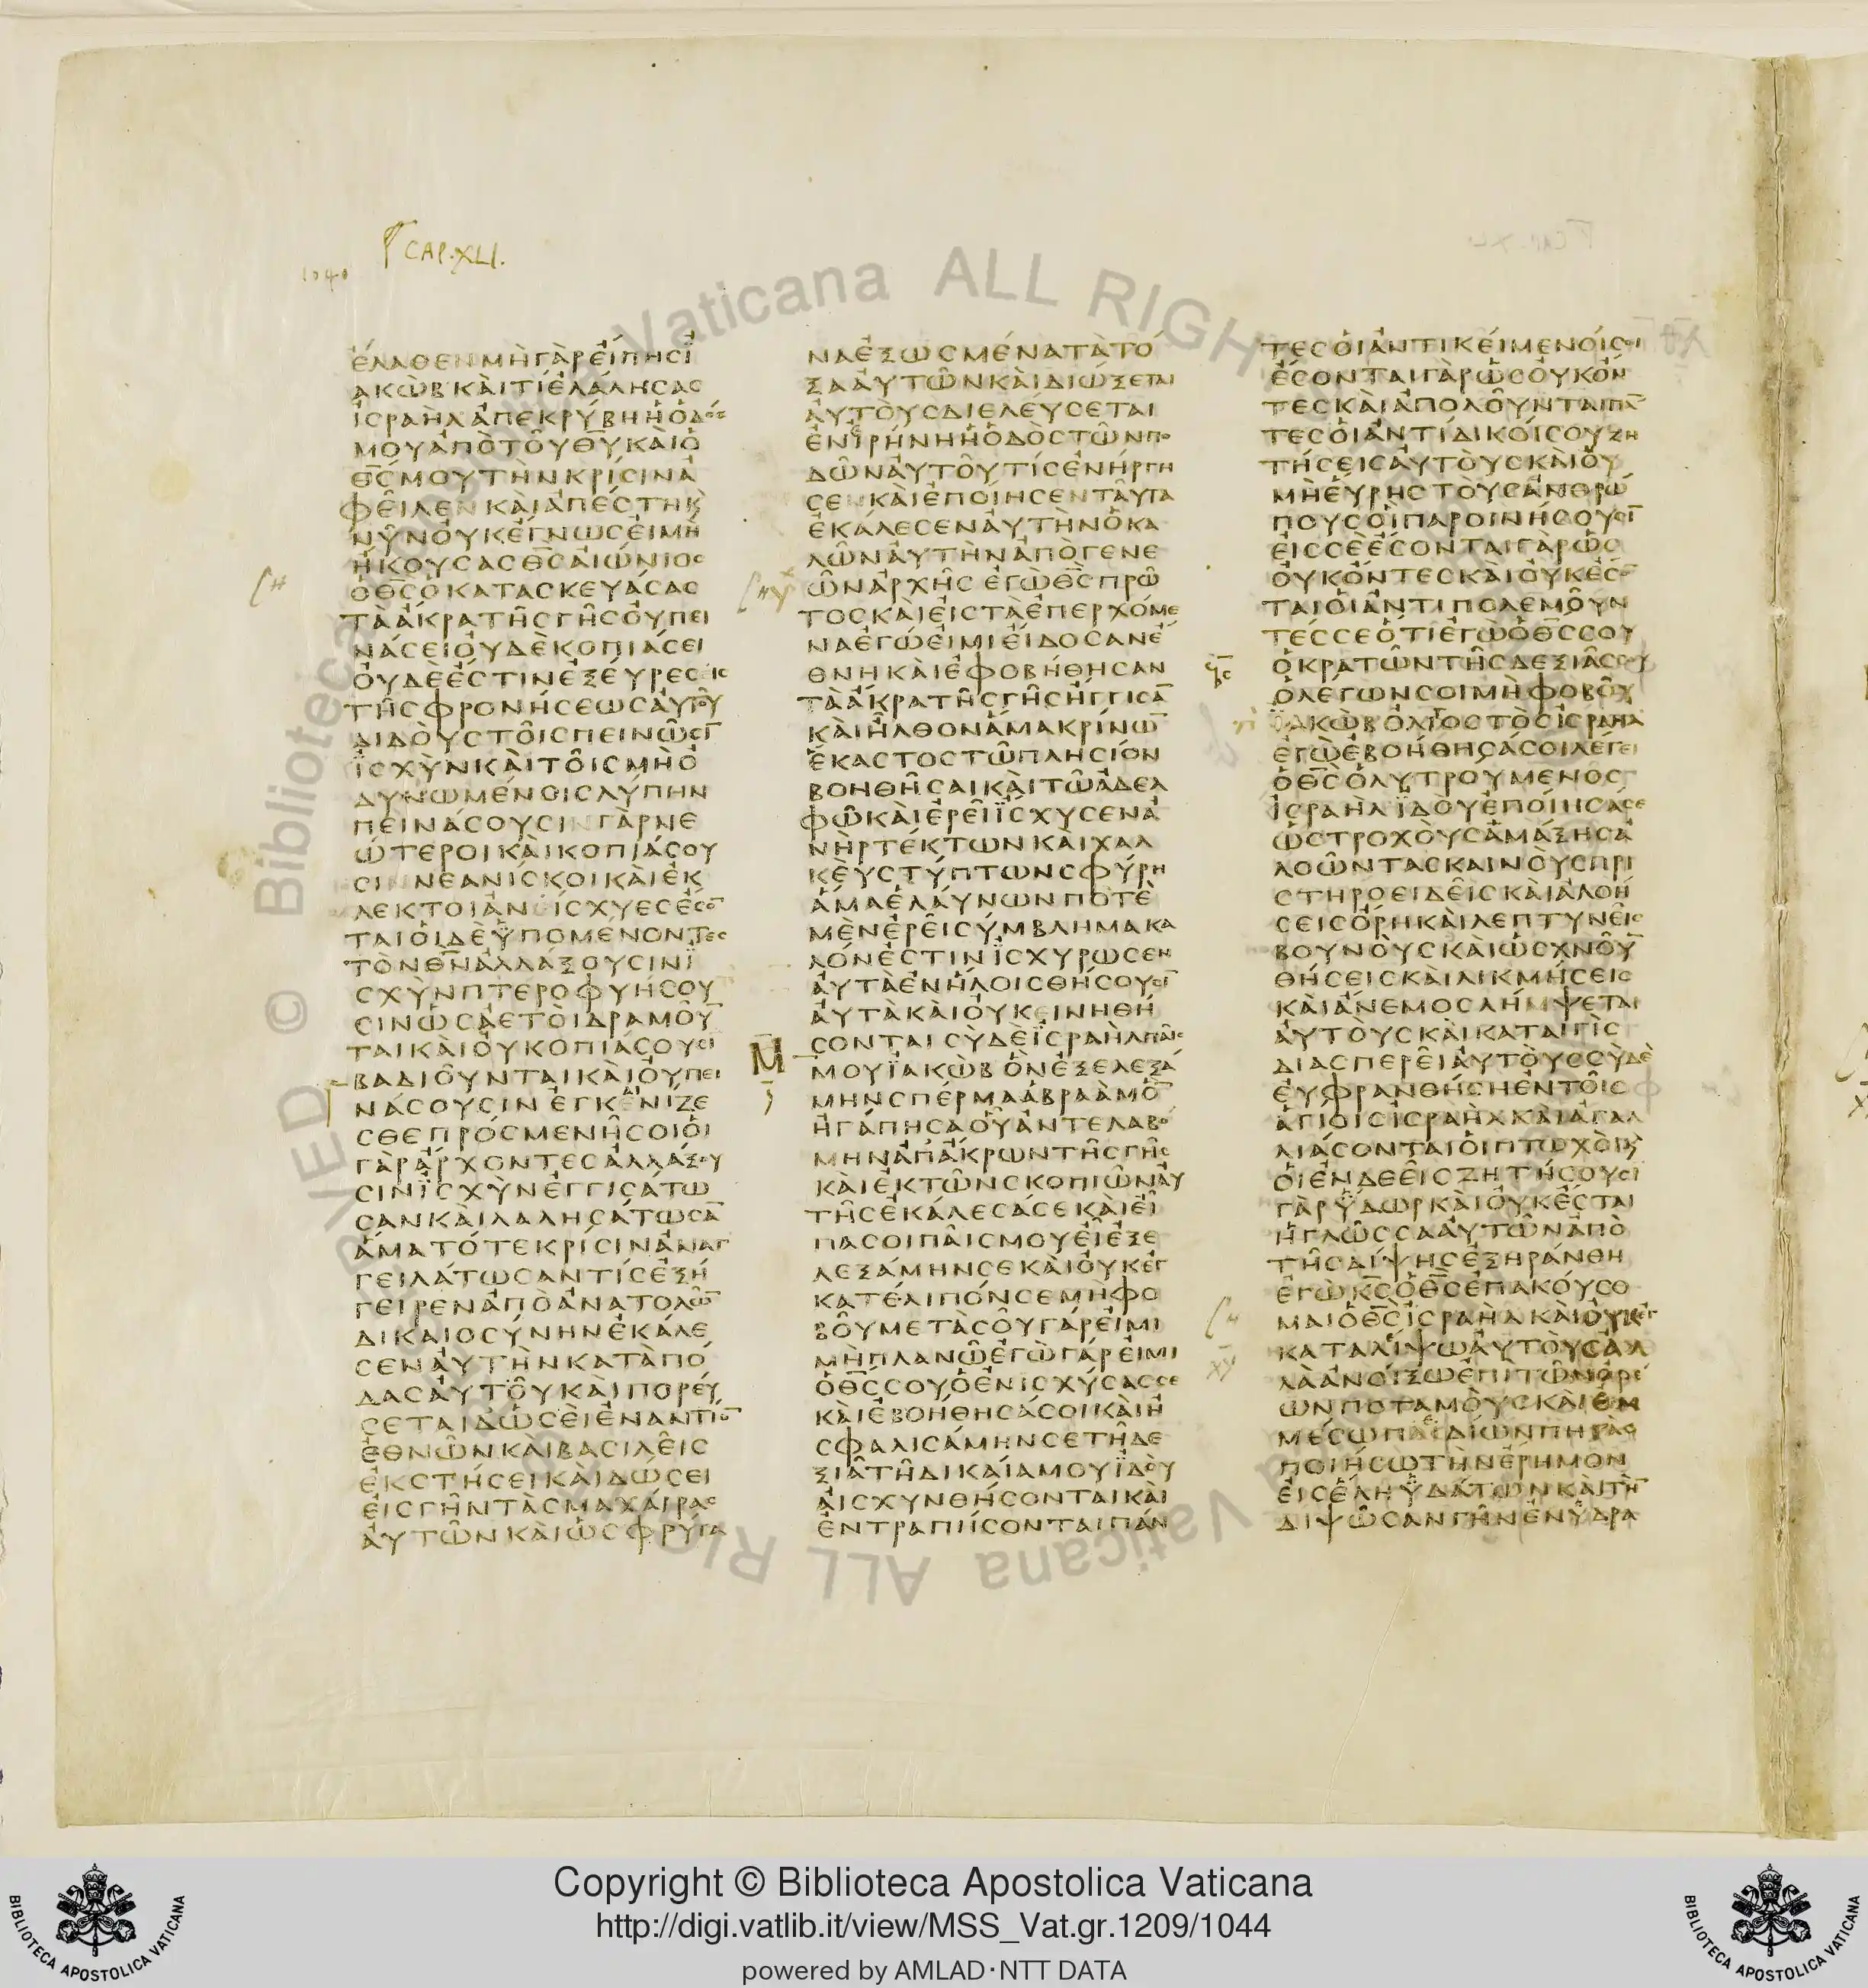 1040
CAP. XLI.
ἔλαθεν μὴ γὰρ εἴπης ϊ
ακὼβ καὶ τί ἐλάλησας
ἰσραὴλ ἀπεκρύβη ἡ ὁδός
μου ἀπὸ τοῦ θ̅υ̅ καὶ ὁ
θ̅ς̅ μου τὴν κρίσιν ἀ
φεῖλεν καὶ ἀπέστη κ̀
νῦν οὐκ ἔγνως εἰ μὴ
ἤκουσας θ̅ς̅ αἰώνιος
ὁ θ̅ς̅ ὁ κατασκευάσας
τὰ ἄκρα τῆς γῆς οὐ πει
νάσει οὐδὲ κοπιάσει
οὐδὲ ἔστιν ἐξεύρεσις
τῆς φρονήσεως αὐτοῦ
διδοὺς τοῖς πεινῶσῑ
ϊσχὺν καὶ τοῖς μὴ ὀ
δυνωμένοις λύπην
πεινάσουσιν γὰρ νε
ώτεροι καὶ κοπιάσου
σιν νεανίσκοι καὶ ἐκ
λεκτοὶ ἀνίσχυες ἔσο̅
ται οἱ δὲ ϋπομένοντες
τὸν θ̅ν̅ ἀλλάξουσιν ϊ
σχύν πτεροφυήσου
σιν ὡς ἀετοὶ δραμοῦ̅
ται καὶ οὐ κοπιάσουσι
βαδιοῦνται καὶ οὐ πει
νάσουσιν ἐγκενίζε
σθε πρός με νῆσοι οἱ
γὰρ ἄρχοντες ἀλλάξου
σιν ϊσχὺν ἐγγισάτω
σαν καὶ λαλησάτωσα̅
ἅμα τότε κρίσιν ἀναγ
γειλάτωσαν τίς ἐξή
γειρεν ἀπὸ ἀνατολῶ̅
δικαιοσύνην ἐκάλε
σεν αὐτὴν κατὰ πό
δας αὐτοῦ καὶ πορεύ
σεται δώσει ἐναντίο̅
ἐθνῶν καὶ βασιλεῖς
ἐκστήσει καὶ δώσει
εἰς γῆν τὰς μαχαίρας
αὐτῶν καὶ ὡς φρύγα
να ἐξωσμένα τὰ τό
ξα αὐτῶν καὶ διώξεται
αὐτοὺς διελεύσεται
ἐν ἰρήνη ἡ ὁδὸς τῶν πο
δῶν αὐτοῦ τίς ἐνήργη
σεν καὶ ἐποίησεν ταῦτα
ἐκάλεσεν αὐτὴν ὁ κα
λῶν αὐτὴν ἀπὸ γενε
ῶν ἀρχῆς ἐγὼ θ̅ς̅ πρῶ
τος καὶ εἰς τὰ ἐπερχόμε
να ἐγώ εἰμι εἴδοσαν ἔ
θνη καὶ ἐφοβήθησαν
τὰ ἄκρα τῆς γῆς ἤγγισα̅
καὶ ἦλθον ἅμα κρίνω̅
ἕκαστος τῶ πλησίον
βοηθῆσαι καὶ τῶ ἀδελ
φῶ καὶ ἐρεῖ ϊσχυσεν ἀ
νὴρ τέκτων καὶ χαλ
κεὺς τύπτων σφύρη
ἅμα ἐλαύνων ποτὲ
μὲν ἐρεῖ σύμβλημα κα
λόν ἐστιν ϊσχυρωσεν
αὐτὰ ἐν ἥλοις θήσουσῑ
αὐτὰ καὶ οὐ κεινηθή
σονται σὺ δὲ ϊσραὴλ παῖς
μου ϊακὼβ ὃν ἐξελεξά
μην σπέρμα ἀβραὰμ ὃ̅
ἠγάπησα οὗ ἀντελαβό
μην ἀπ ἄκρων τῆς γῆς
καὶ ἐκ τῶν σκοπιῶν αὐ
τῆς ἐκάλεσά σε καὶ εἶ
πά σοι παῖς μου εἶ ἐξε
λεξάμην σε καὶ οὐκ ἐγ
κατέλιπόν σε μὴ φο
βοῦ μετὰ σοῦ γάρ εἰμι
μὴ πλανῶ ἐγὼ γάρ εἰμι
ὁ θ̅ς̅ σου ὁ ἐνισχύσας σε
καὶ ἐβοήθησά σοι καὶ ἠ
σφαλισάμην σε τῆ δε
ξιᾶ τῆ δικαία μου ϊδοὺ
αἰσχυνθήσονται καὶ
ἐντραπήσονται πάν
τες οἱ ἀντικείμενοί σοι
ἔσονται γὰρ ὡς οὐκ ὄν
τες καὶ ἀπολοῦνται πά̅
τες οἱ ἀντίδικοί σου ζη
τήσεις αὐτοὺς καὶ οὐ
μὴ εὕρης τοὺς ἀνθρώ
πους οἳ παροινήσουσῑ
εἰς σὲ ἔσονται γὰρ ὡς
οὐκ ὄντες καὶ οὐκ ἔσο̅
ται οἱ ἀντιπολεμοῦν
τές σε ὅτι ἐγὼ ὁ θ̅ς̅ σου
ὁ κρατῶν τῆς δεξιᾶς σου
ὁ λέγων σοι μὴ φοβοῦ
ϊακὼβ ὀλίγοστὸς ἰσραὴλ
ἐγὼ ἐβοήθησά σοι λέγει
ὁ θ̅ς̅ ὁ λυτρούμενός
ἰσραὴλ ϊδοὺ ἐποίησά σε
ὡς τροχοὺς ἁμάξης ἀ
λοῶντας καινοὺς πρι
στηροειδεῖς καὶ ἀλοή
σεις ὄρη καὶ λεπτυνεῖς
βουνοὺς καὶ ὡς χνοῦ̅
θήσεις καὶ λικμήσεις
καὶ ἄνεμος λήμψεται
αὐτοὺς καὶ καταιγὶς
διασπερεῖ αὐτοὺς σὺ δὲ
εὐφρανθήση ἐν τοῖς
ἁγίοις ἰσραὴλ καὶ ἀγαλ
λιάσονται οἱ πτωχοὶ κ̀
οἱ ἐνδεεῖς ζητήσουσι
γὰρ ὕδωρ καὶ οὐκ ἔσται
ἡ γλῶσσα αὐτῶν ἀπὸ
τῆς δίψης ἐξηράνθη
ἐγὼ κ̅ς̅ ὁ θ̅ς̅ ἐπακούσο
μαι ὁ θ̅ς̅ ἰσραὴλ καὶ οὐκ ἐγ
καταλίψω αὐτοὺς ἀλ
λὰ ἀνοίξω ἐπὶ τῶν ὀρέ
ων ποταμοὺς καὶ ἐμ
μέσω πεδίων πηγάς
ποιήσω τὴν ἔρημον
εἰς ἕλη ὑδάτων καὶ τὴ̅
διψῶσαν γῆν ἐν ὑδρα
Copyright © Biblioteca Apostolica Vaticana
http://digi.vatlib.it/view/MSS_Vat.gr.1209/1044
powered by AMLAD·NTT DATA
BIBLIOTECA APOSTOLICA VATICANA
BIBLIOTECA APOSTOLICA VATICANA